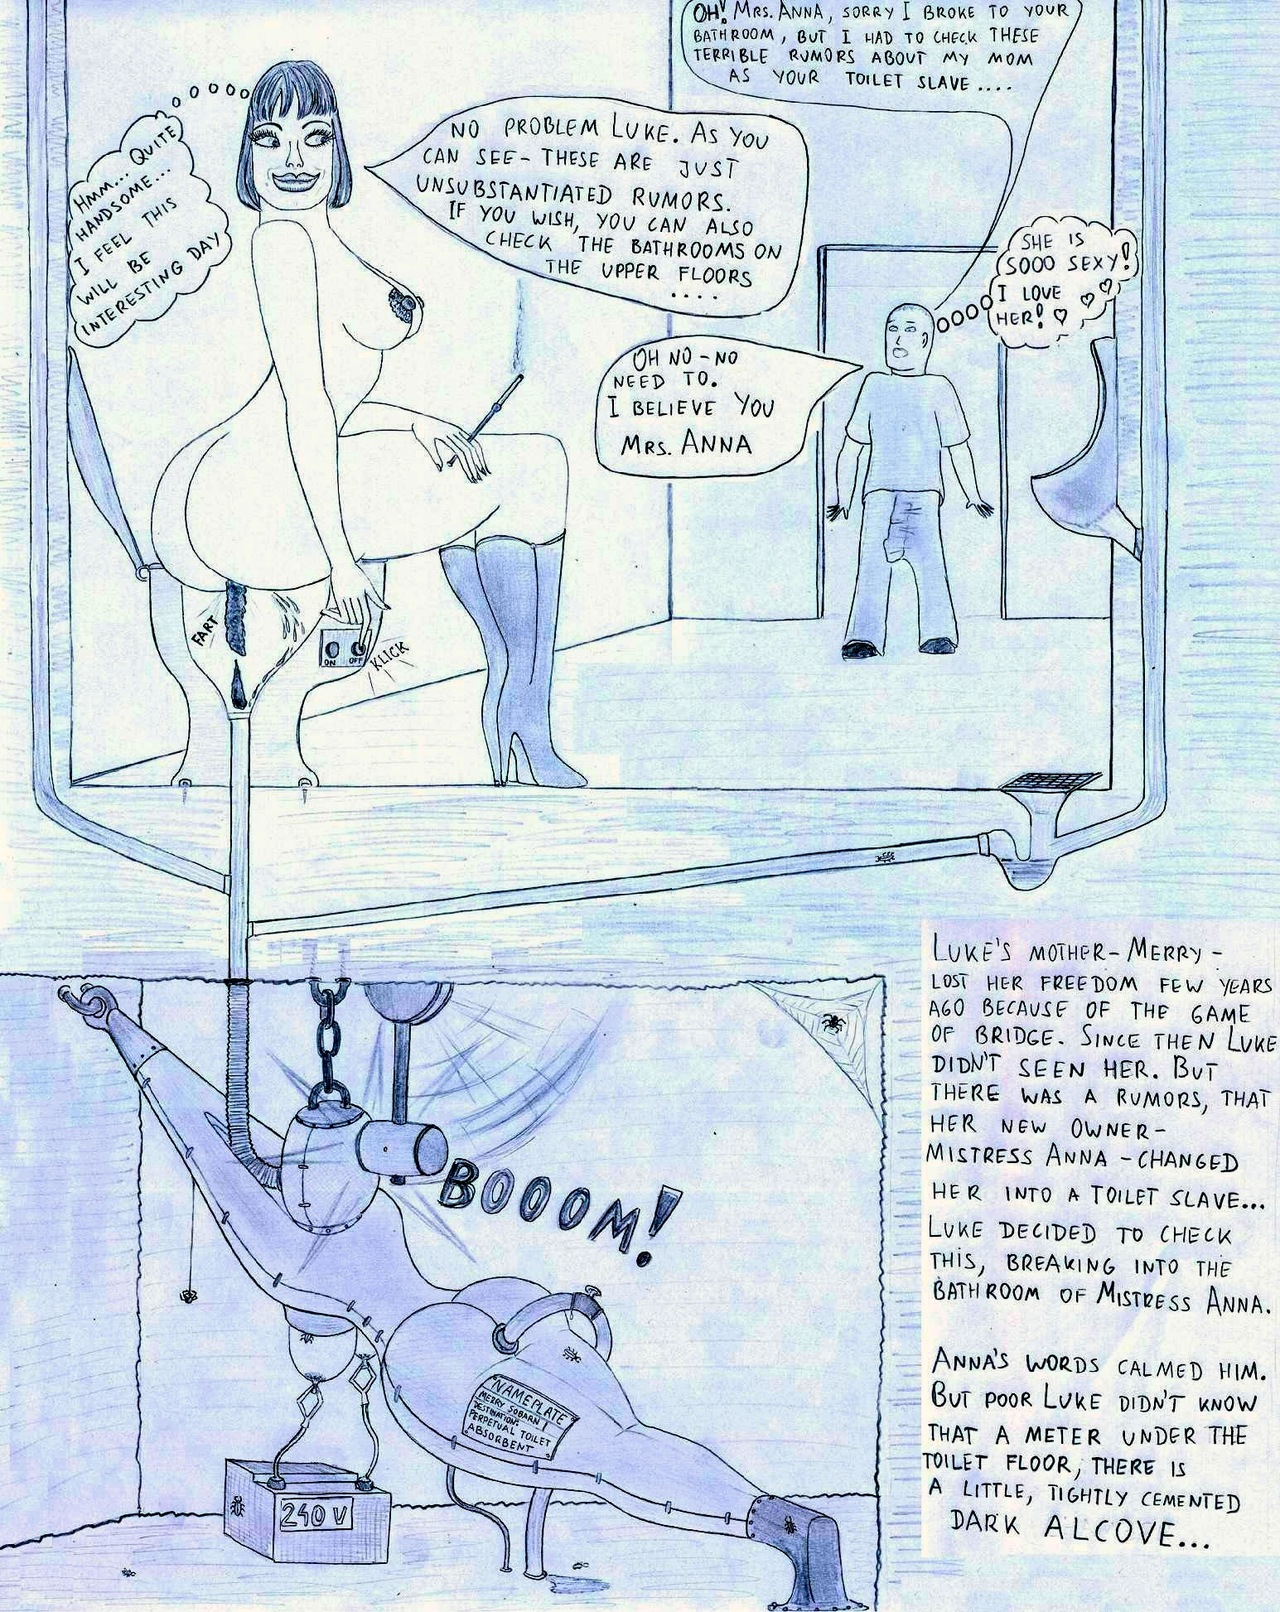 OH! MRS. ANNA, SORRY I BROKE TO YOUR
BATHROOM, BUT I HAD TO CHECK THESE
TERRIBLE RUMORS ABOUT MY MOM
AS YOUR TOILET SLAVE ....
HMM... QUITE
HANDSOME...
I FEEL THIS
WILL BE
INTERESTING DAY
NO PROBLEM LUKE. AS YOU
CAN SEE - THESE ARE JUST
UNSUBSTANTIATED RUMORS.
IF YOU WISH, YOU CAN ALSO
CHECK THE BATHROOMS ON
THE UPPER FLOORS
....
SHE IS
SOOO SEXY!
I LOVE
HER!
OH NO - NO
NEED TO.
I BELIEVE YOU
MRS. ANNA
FART
ON OFF
KLICK
LUKE'S MOTHER - MERRY -
LOST HER FREEDOM FEW YEARS
AGO BECAUSE OF THE GAME
OF BRIDGE. SINCE THEN LUKE
DIDN'T SEEN HER. BUT
THERE WAS A RUMORS, THAT
HER NEW OWNER -
MISTRESS ANNA - CHANGED
HER INTO A TOILET SLAVE...
LUKE DECIDED TO CHECK
THIS, BREAKING INTO THE
BATHROOM OF MISTRESS ANNA.
ANNA'S WORDS CALMED HIM.
BUT POOR LUKE DIDN'T KNOW
THAT A METER UNDER THE
TOILET FLOOR, THERE IS
A LITTLE, TIGHTLY CEMENTED
DARK ALCOVE...
BOOOM!
NAMEPLATE
MERRY SOBARN
DESTINATION:
PERPETUAL TOILET
ABSORBENT
240 V